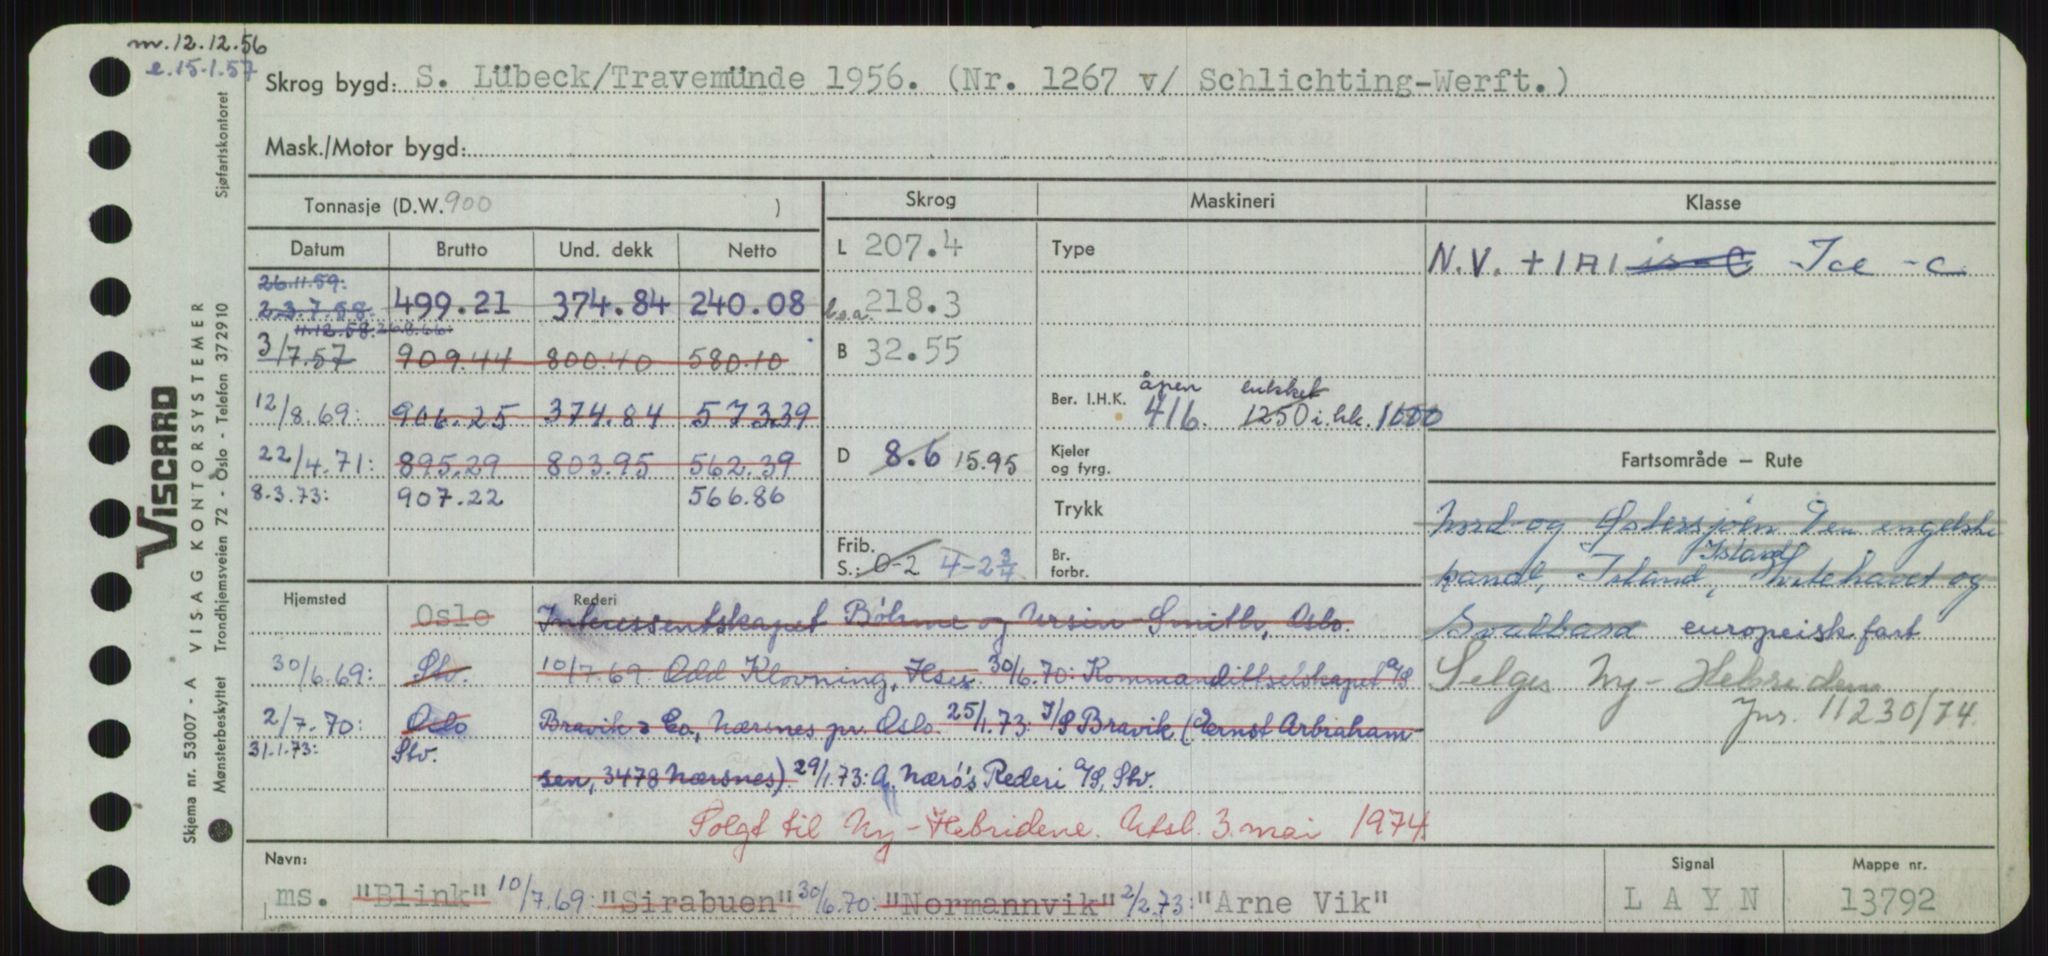 m. 12.12.56
e. 15.1.57
Skrog bygd: S. Lübeck/Travemünde 1956. (Nr. 1267 v/ Schlichting-Werft.)
Mask./Motor bygd:
Tonnasje (D.W. 900 )
Skrog Maskineri Klasse
Datum Brutto Und. dekk Netto
L 207.4 Type N.V. +1A1 is-C Ice-c
26.11.59:
23.7.58. 499.21 374.84 240.08 l.o.a. 218.3
11.12.58. 26.8.66:
3/7.57 909.44 800.40 580.10 B 32.55
åpen lukket
12/8.69: 906.25 374.84 573.39 Ber. I.H.K. 416. 1250 i.hk. 1600
22/4.71: 895.29 803.95 562.39 D 8.6 15.95 Kjeler og fyrg. Fartsområde – Rute
8.3.73: 907.22 566.86 Trykk Nord- og Østersjøen Den engelske
Frib. S.: 0-2 4-2 3/4 Br. forbr. kanal, Island, Island Kvitehavet og
Hjemsted Rederi
Oslo Interessentskapet Böhme og Ursin-Smith, Oslo. Svalbard europeisk fart
30/6.69: Stv. 10/7.69. Odd Klovning, 30/6.70: Kommandittselskapet A/S Selges Ny-Hebridene
2/7.70: Oslo Bravik & Co, Nærsnes pr. Oslo. 25/1.73: I/S Bravik (Ernst Arbraham- jnr. 11230/74.
31.1.73: Stv. sen, 3478 Nærsnes). 29/1.73: A. Nærö's Rederi A/S, Stv.
Solgt til Ny-Hebridene. Utsl. 3. mai 1974
Navn: Signal Mappe nr.
ms. "Blink" 10/7.69: "Sirabuen" 30/6.70: "Normannvik" 2/2.73: "Arne Vik" LAYN 13792
VISCARD
Skjema nr. 53007 - A VISAG KONTORSYSTEMER
Mønsterbeskyttet Trondhjemsveien 72 - Oslo - Telefon 372910 Sjøfartskontoret